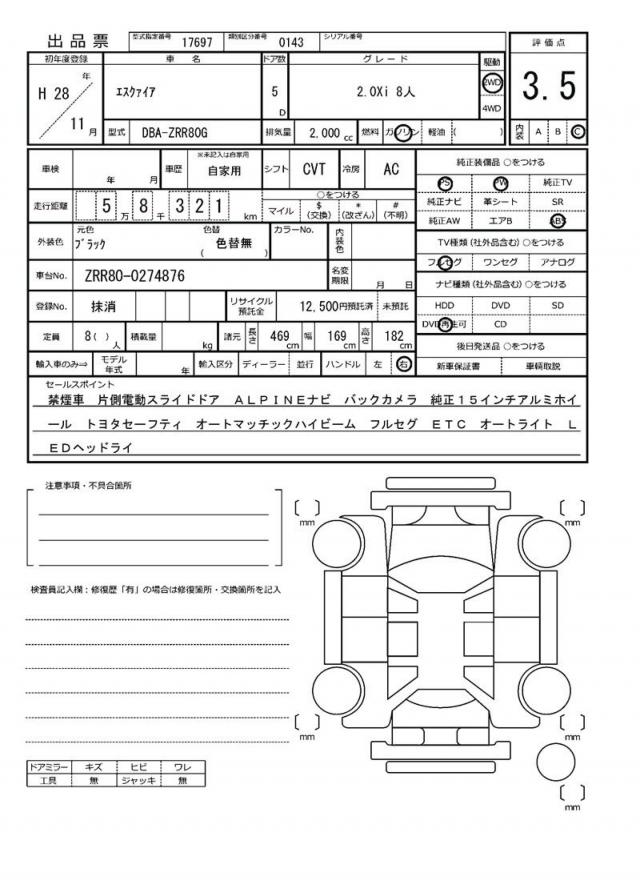 出品票 型式指定番号 17697 類別区分番号 0143 シリアル番号
初年度登録 車名 ドア数 グレード 駆動 評価点
H 28 年 11 月 エスクァイア 5 D 2.0Xi 8人 2WD 4WD 3.5
型式 DBA-ZRR80G 排気量 2,000 cc 燃料 ガソリン 軽油 ( ) 内装 A B C
車検 年 月 車歴 ※未記入は自家用 自家用 シフト CVT 冷房 AC
走行距離 5 万 8 千 3 2 1 km ○をつける マイル $ (交換) * (改ざん) # (不明)
外装色 元色 ブラック 色替 色替無 ( ) カラーNo. 内装色
車台No. ZRR80-0274876 名変期限 月 日
登録No. 抹消 リサイクル預託金 12,500円預託済 未預託
定員 8( ) 人 積載量 kg 諸元 長さ 469 cm 幅 169 cm 高さ 182 cm
輸入車のみ⇒ モデル年式 年 輸入区分 ディーラー 並行 ハンドル 左 右
純正装備品 ○をつける
PS PW 純正TV
純正ナビ 革シート SR
純正AW エアB ABS
TV種類(社外品含む)○をつける
フルセグ ワンセグ アナログ
ナビ種類(社外品含む)○をつける
HDD DVD SD
DVD再生可 CD
後日発送品 ○をつける
新車保証書 車輌取説
セールスポイント
禁煙車 片側電動スライドドア ALPINEナビ バックカメラ 純正15インチアルミホイ
ール トヨタセーフティ オートマッチックハイビーム フルセグ ETC オートライト L
EDヘッドライ
注意事項・不具合箇所
検査員記入欄:修復歴「有」の場合は修復箇所・交換箇所を記入
mm
mm
mm
mm
mm
ドアミラー キズ ヒビ ワレ
工具 無 ジャッキ 無